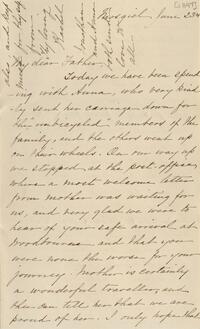 [1897]
June 23rd
My dear Father,
Today we have been spend-
ing with Anna, who very kind-
ly sent her carriage down for
the "unbicycled" members of the
family, and the others went up
on their wheels. On our way up
we stopped at the post-office,
where a most welcome letter
from mother was waiting for
us, and very glad we were to
hear of your safe arrival at
Woodbourne and that you
were none the worse for your
journey. Mother is certainly
a wonderful traveller, and
tell her that we are
proud of her. I only hope that
love to
all